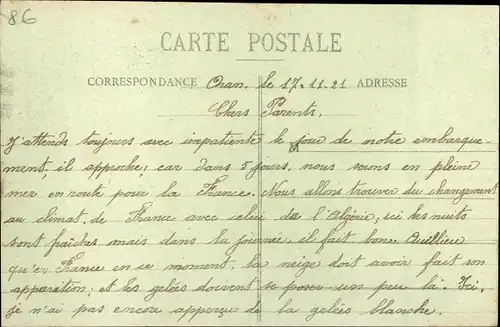 86
CARTE POSTALE
CORRESPONDANCE Oran, le 17.11.21 ADRESSE
Chers Parents,
J'attends toujours avec impatiente le jour de notre embarque-
ment, il approche; car dans 5 jours, nous serons en pleine
mer en route pour la France. Nous allons trouver du changement
au climat de France avec celui de l'Algérie; ici les nuits
sont fraîches mais dans la journée, il fait bon.
qu'en France en ce moment, la neige doit avoir fait son
apparition; et les gelées doivent se poser un peu là. Ici,
je n'ai pas encore aperçu de la gelées blanche.